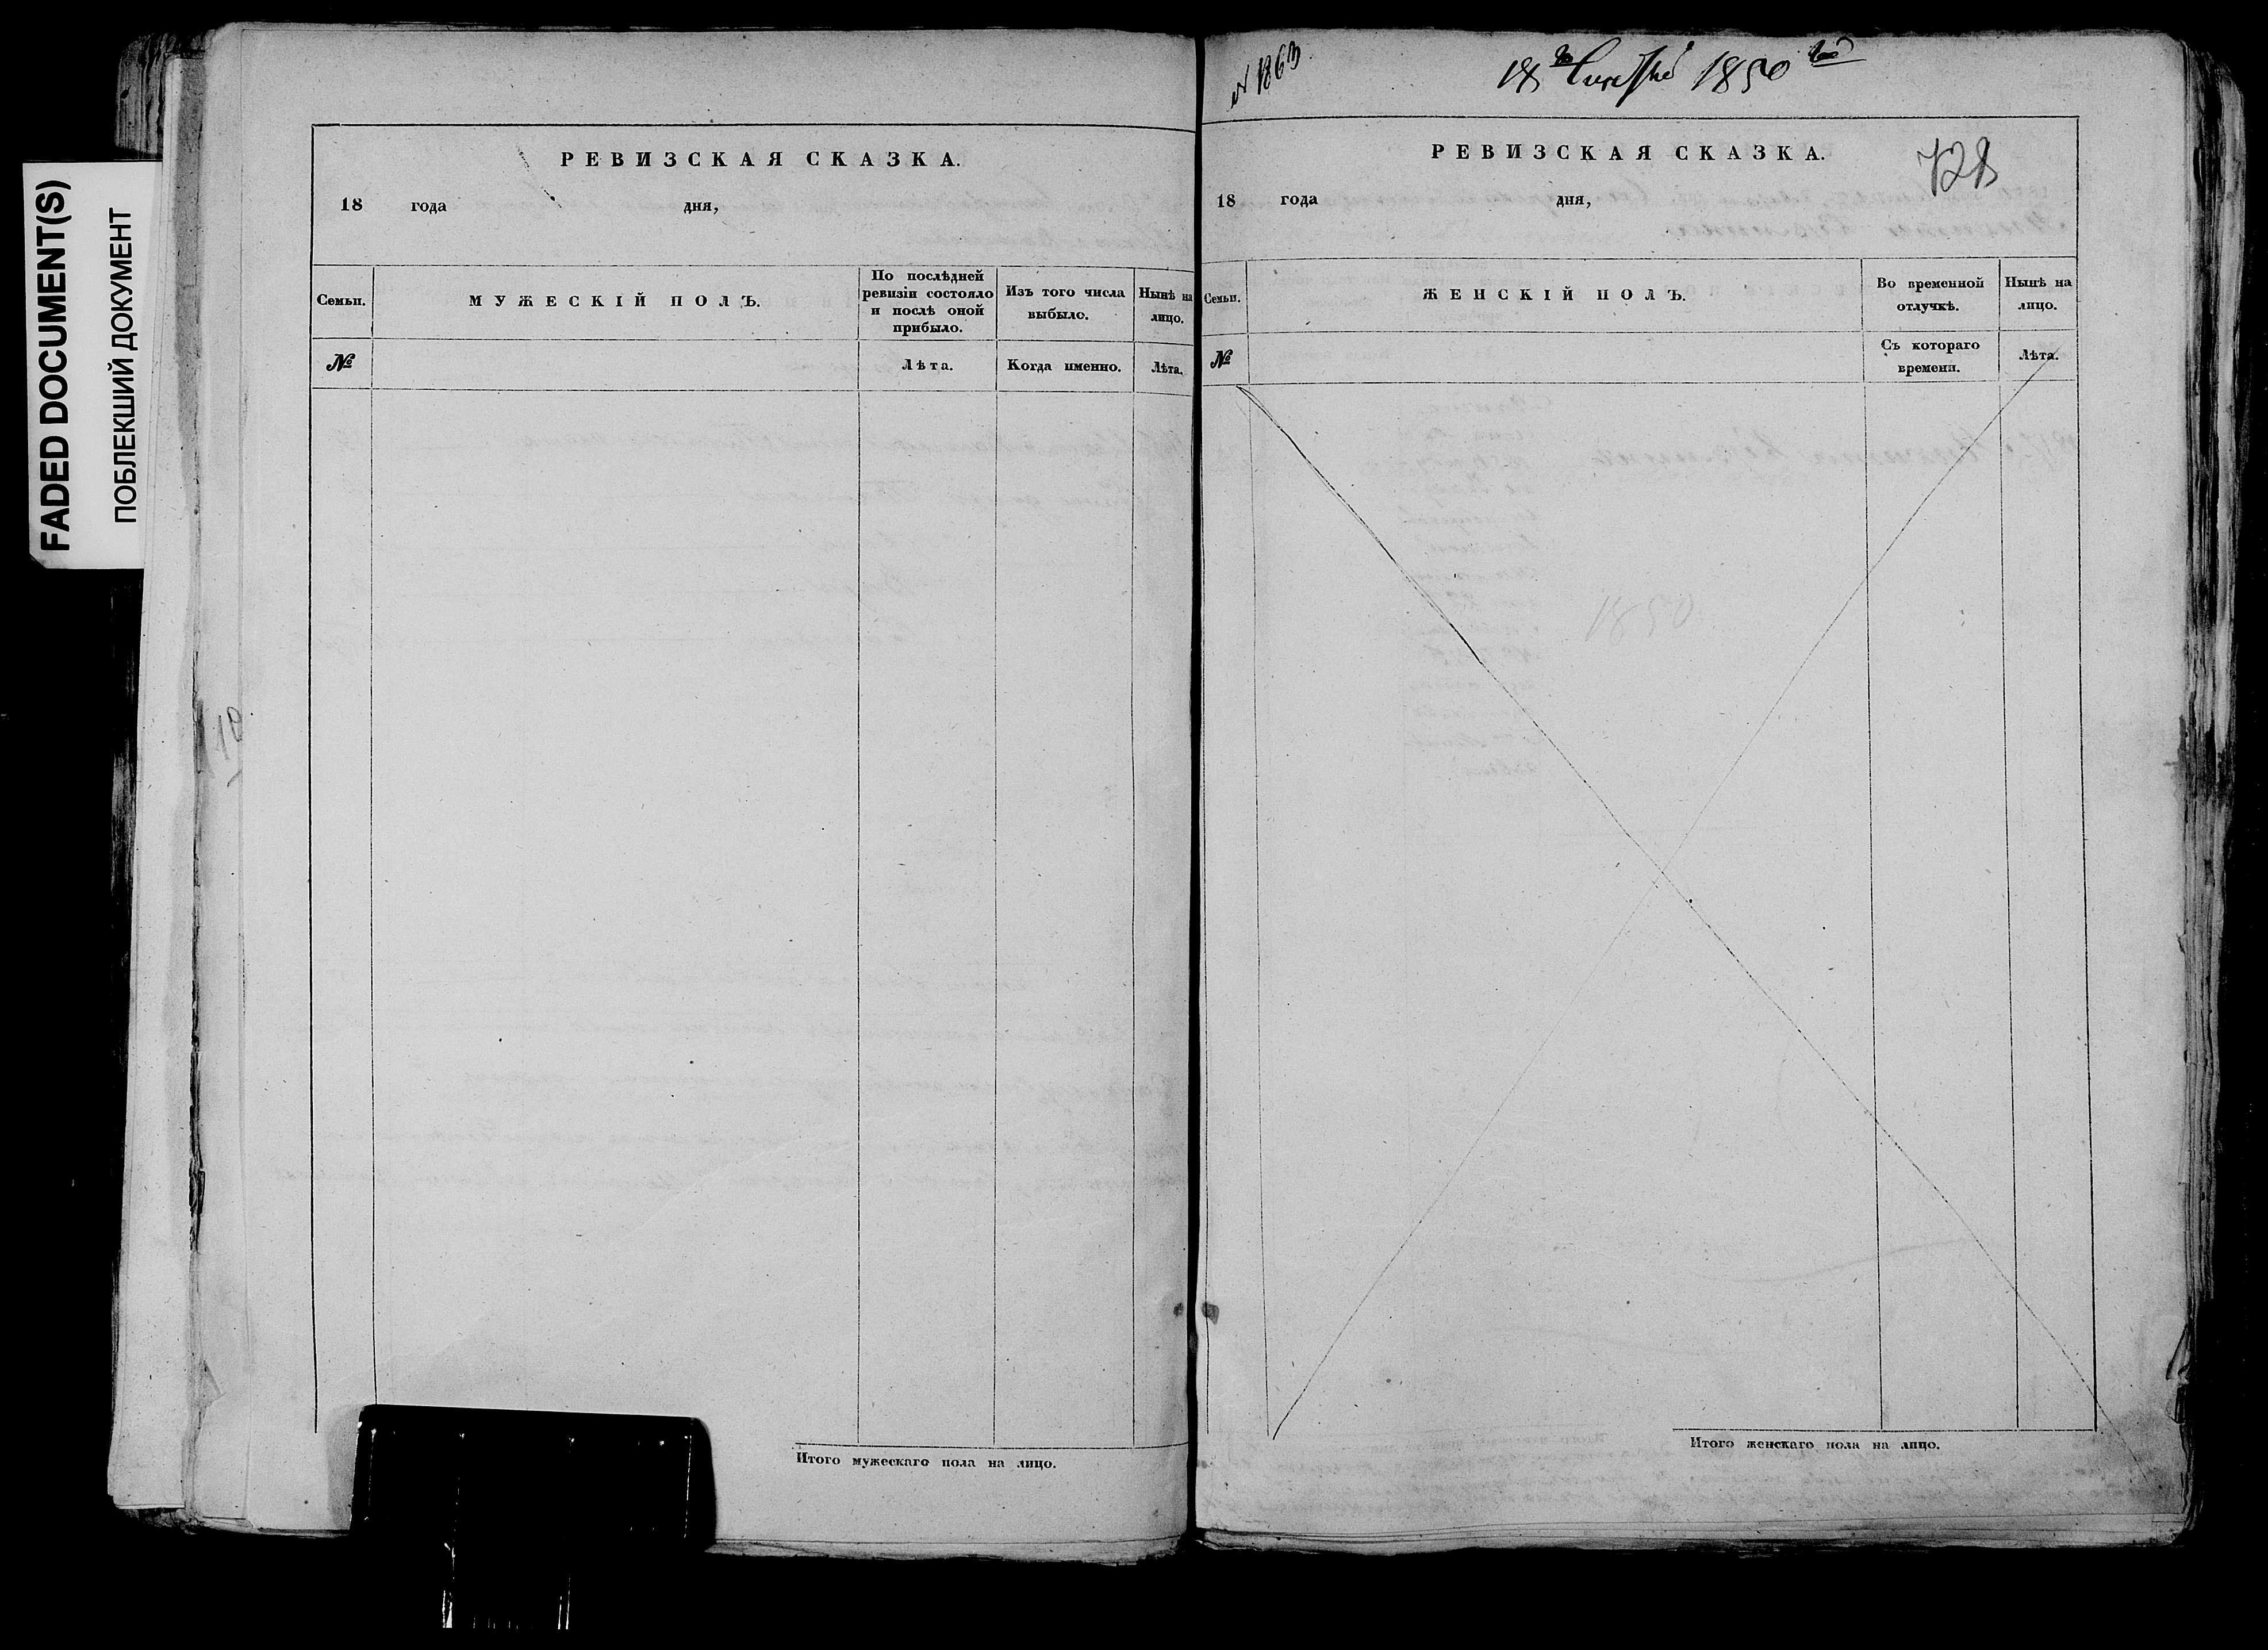 FADED DOCUMENT(S)
ПОБЛЕКШИЙ ДОКУМЕНТ
10
РЕВИЗСКАЯ СКАЗКА.
18 года дня,
Семьи. МУЖЕСКІЙ ПОЛЪ. По послѣдней ревизіи состояло и послѣ оной прибыло. Изъ того числа выбыло. Нынѣ на лицо.
№ Лѣта. Когда именно. Лѣта.
Итого мужескаго пола на лицо.
№ 1863
18 1850
728
РЕВИЗСКАЯ СКАЗКА.
18 года дня,
Семьи. ЖЕНСКІЙ ПОЛЪ. Во временной отлучкѣ. Нынѣ на лицо.
№ Съ котораго времени. Лѣта.
1850
Итого женскаго пола на лицо.